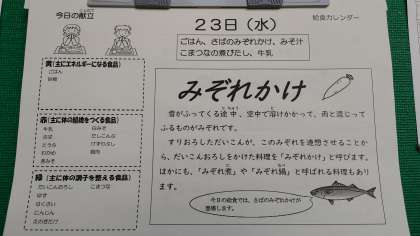 今日の献立
23日（水）
給食カレンダー
ごはん、さばのみぞれかけ、みそ汁
こまつなの煮びたし、牛乳
黄（主にエネルギーになる食品）
ごはん
赤（主に体の組織をつくる食品）
牛乳
さば
とうふ
わかめ
緑（主に体の調子を整える食品）
だいこんおろし
こまつな
はくさい
にんじん
えのきだけ
みぞれかけ
雪がふってくる途中、空中で溶けかかって、雨と混じって
ふるものがみぞれです。
すりおろしただいこんが、このみぞれを連想させることか
ら、だいこんおろしをかけた料理を「みぞれかけ」と呼びます。
ほかにも、「みぞれ煮」や「みぞれ鍋」と呼ばれる料理もあり
ます。
今日の給食では、さばのみぞれかけが
登場します。